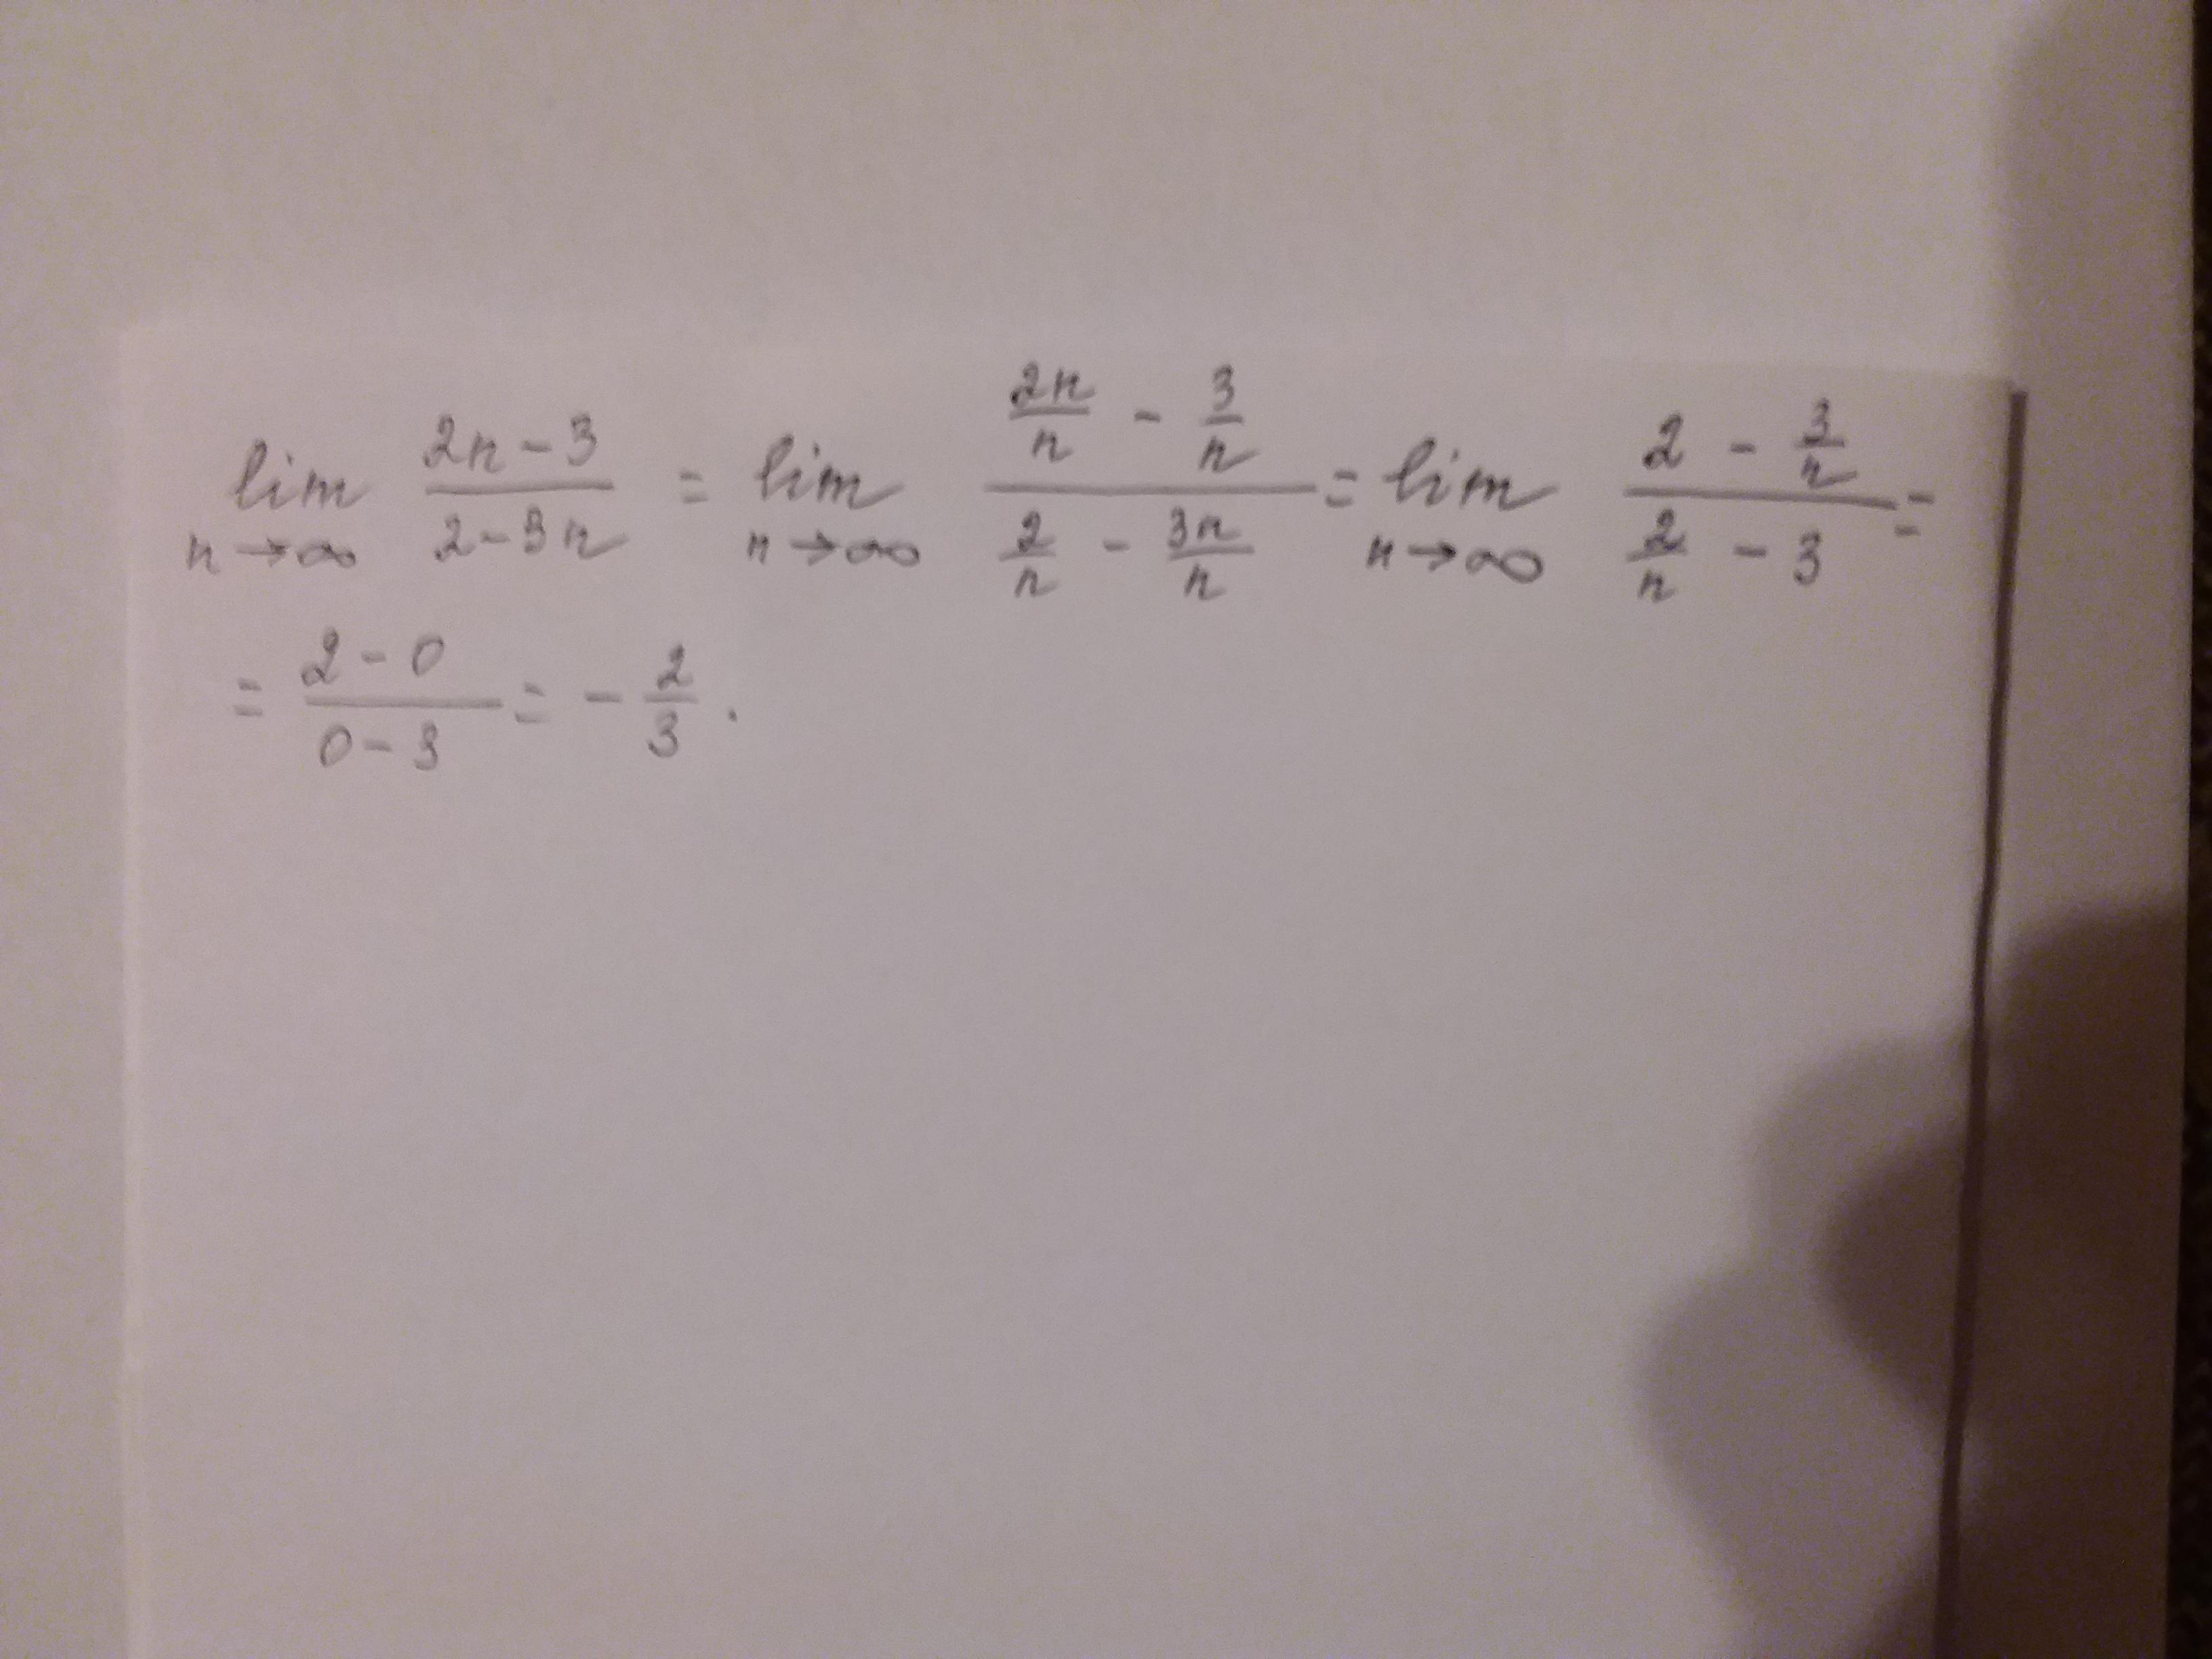 lim n→∞ (2n-3)/(2-3n) = lim n→∞ (2n/n - 3/n)/(2/n - 3n/n) = lim n→∞ (2 - 3/n)/(2/n - 3) =
= (2-0)/(0-3) = - 2/3.